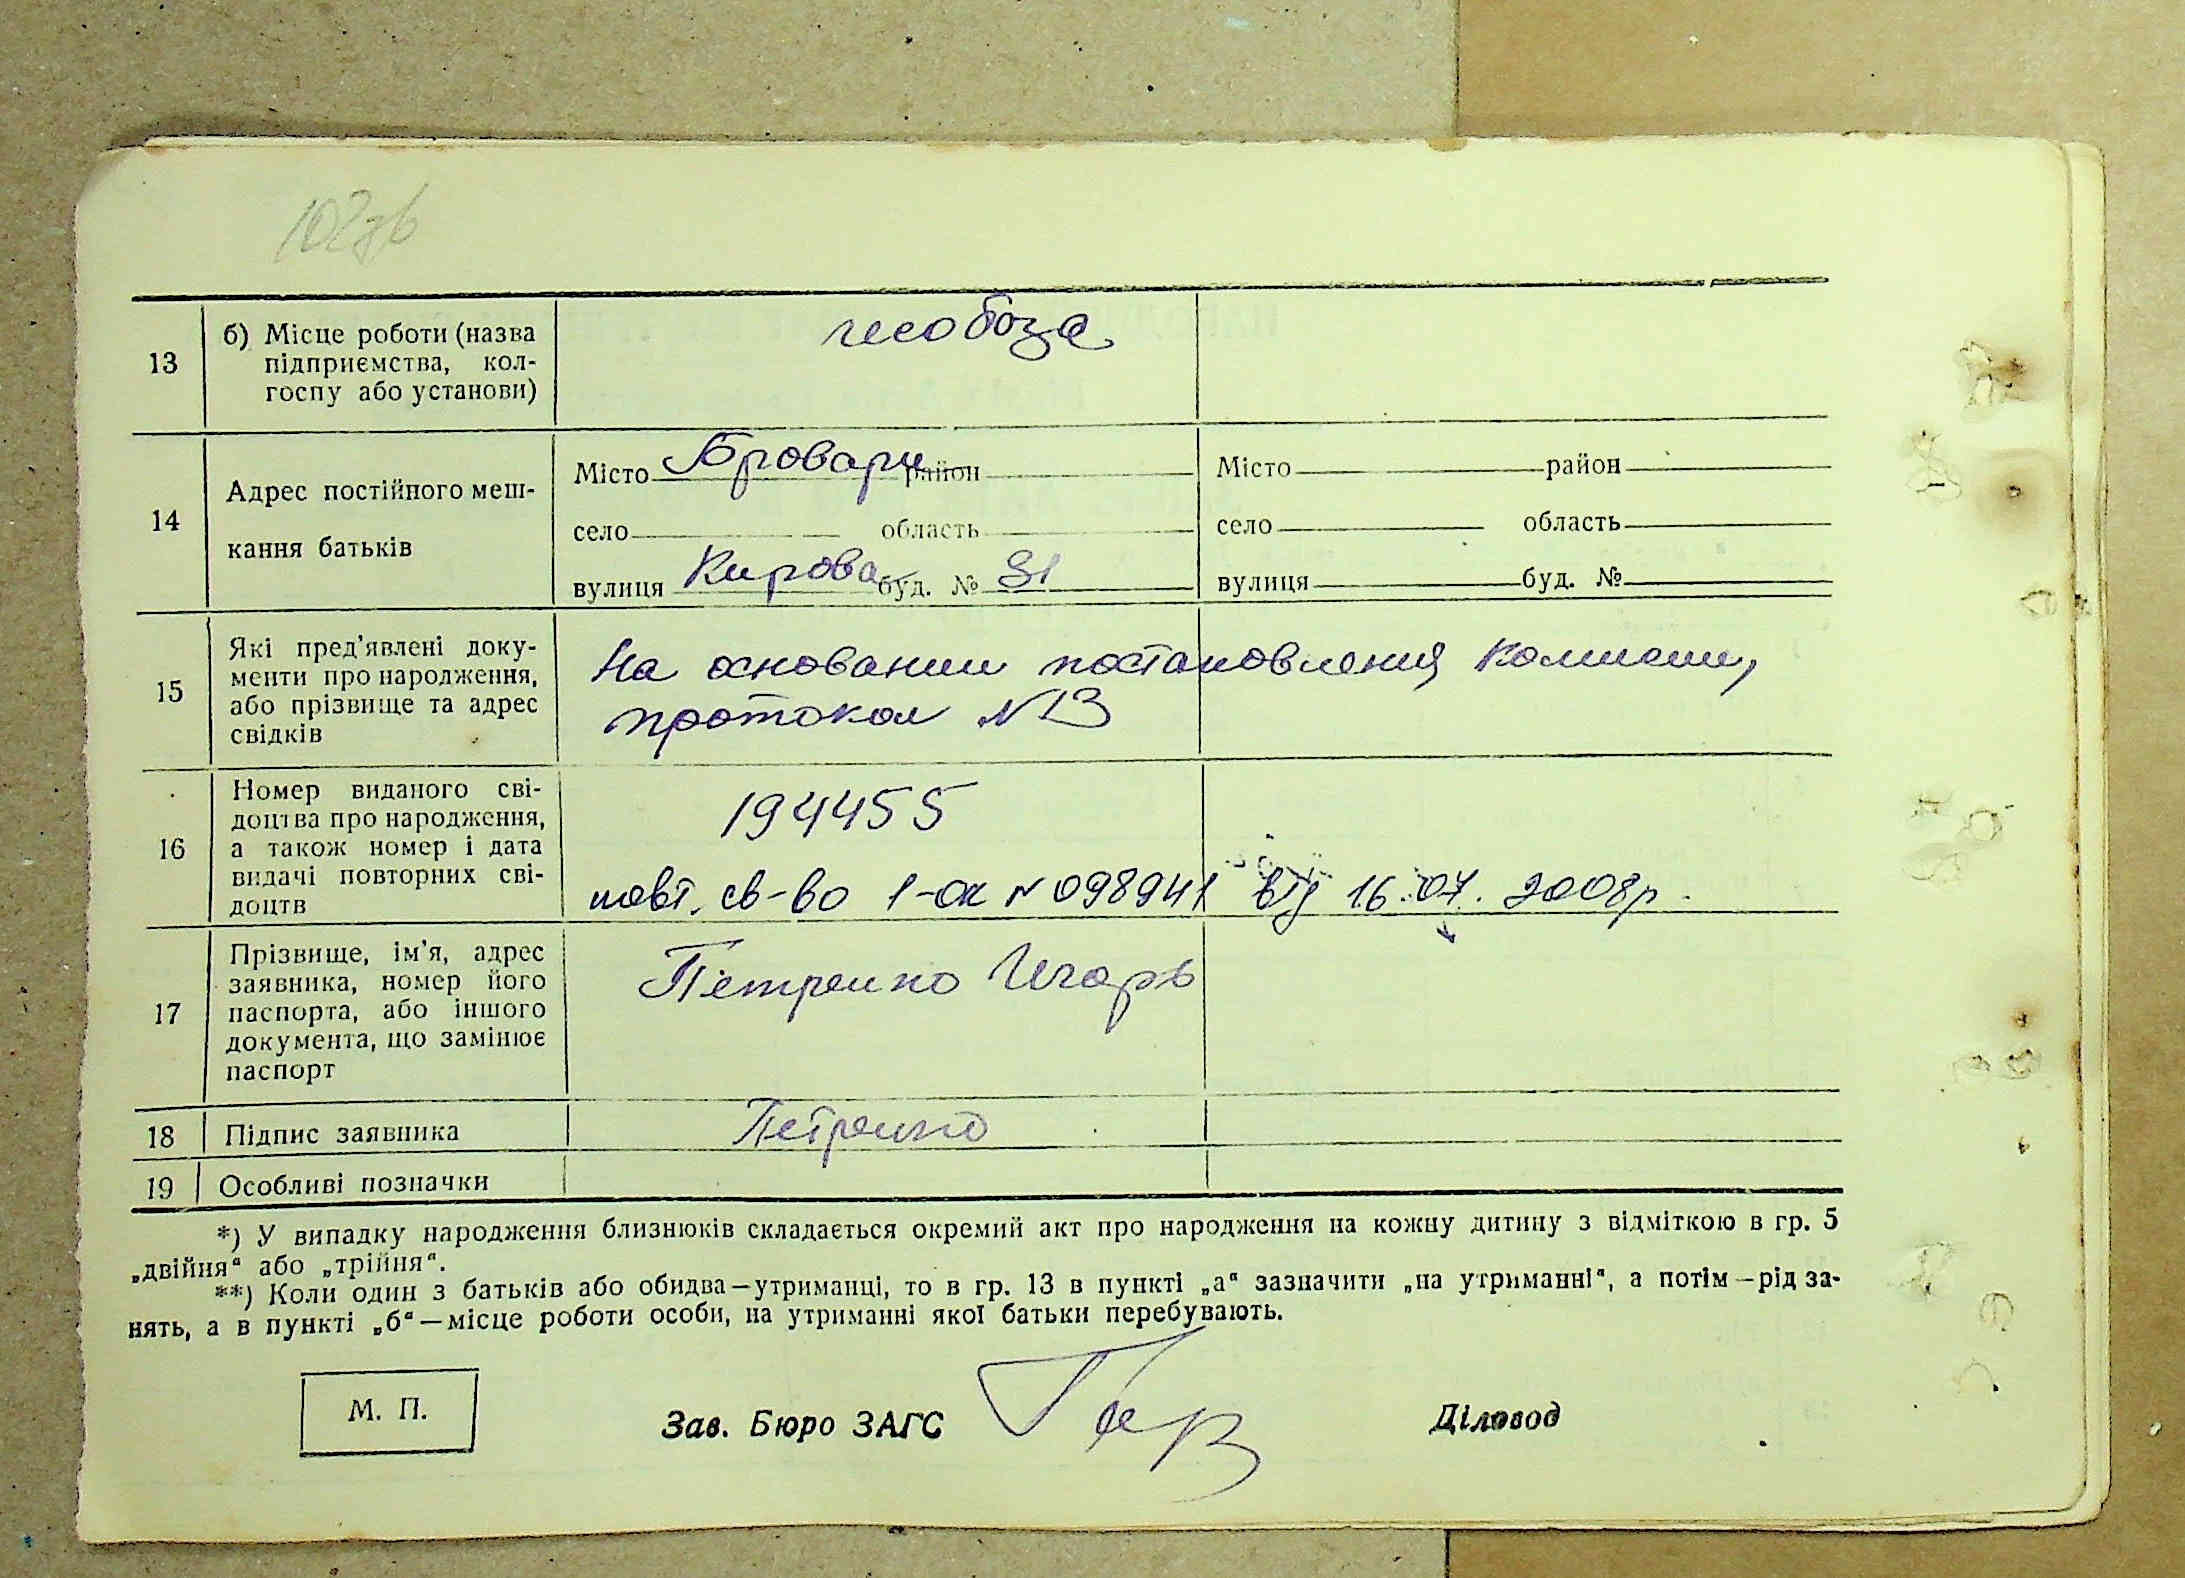 102зв
13
б) Місце роботи (назва
підприємства, кол-
госпу або установи)
14
Адрес постійного меш-
кання батьків
Місто Бровари район
село область
вулиця Кирова буд. № 31
Місто район
село область
вулиця буд. №
15
Які пред'явлені доку-
менти про народження,
або прізвище та адрес
свідків
На основании постановления комиссии,
протокол №13
16
Номер виданого сві-
доцтва про народження,
а також номер і дата
видачі повторних сві-
доцтв
194455
повт. св-во 1-ок №098941 від 16.07.2008р.
17
Прізвище, ім'я, адрес
заявника, номер його
паспорта, або іншого
документа, що замінює
паспорт
Петренко Игорь
18 Підпис заявника
Петренко
19 Особливі позначки
*) У випадку народження близнюків складається окремий акт про народження на кожну дитину з відміткою в гр. 5
„двійня“ або „трійня“.
**) Коли один з батьків або обидва—утриманці, то в гр. 13 в пункті „а“ зазначити „на утриманні“, а потім—рід за-
нять, а в пункті „б“—місце роботи особи, на утриманні якої батьки перебувають.
М. П.
Зав. Бюро ЗАГС
Діловод